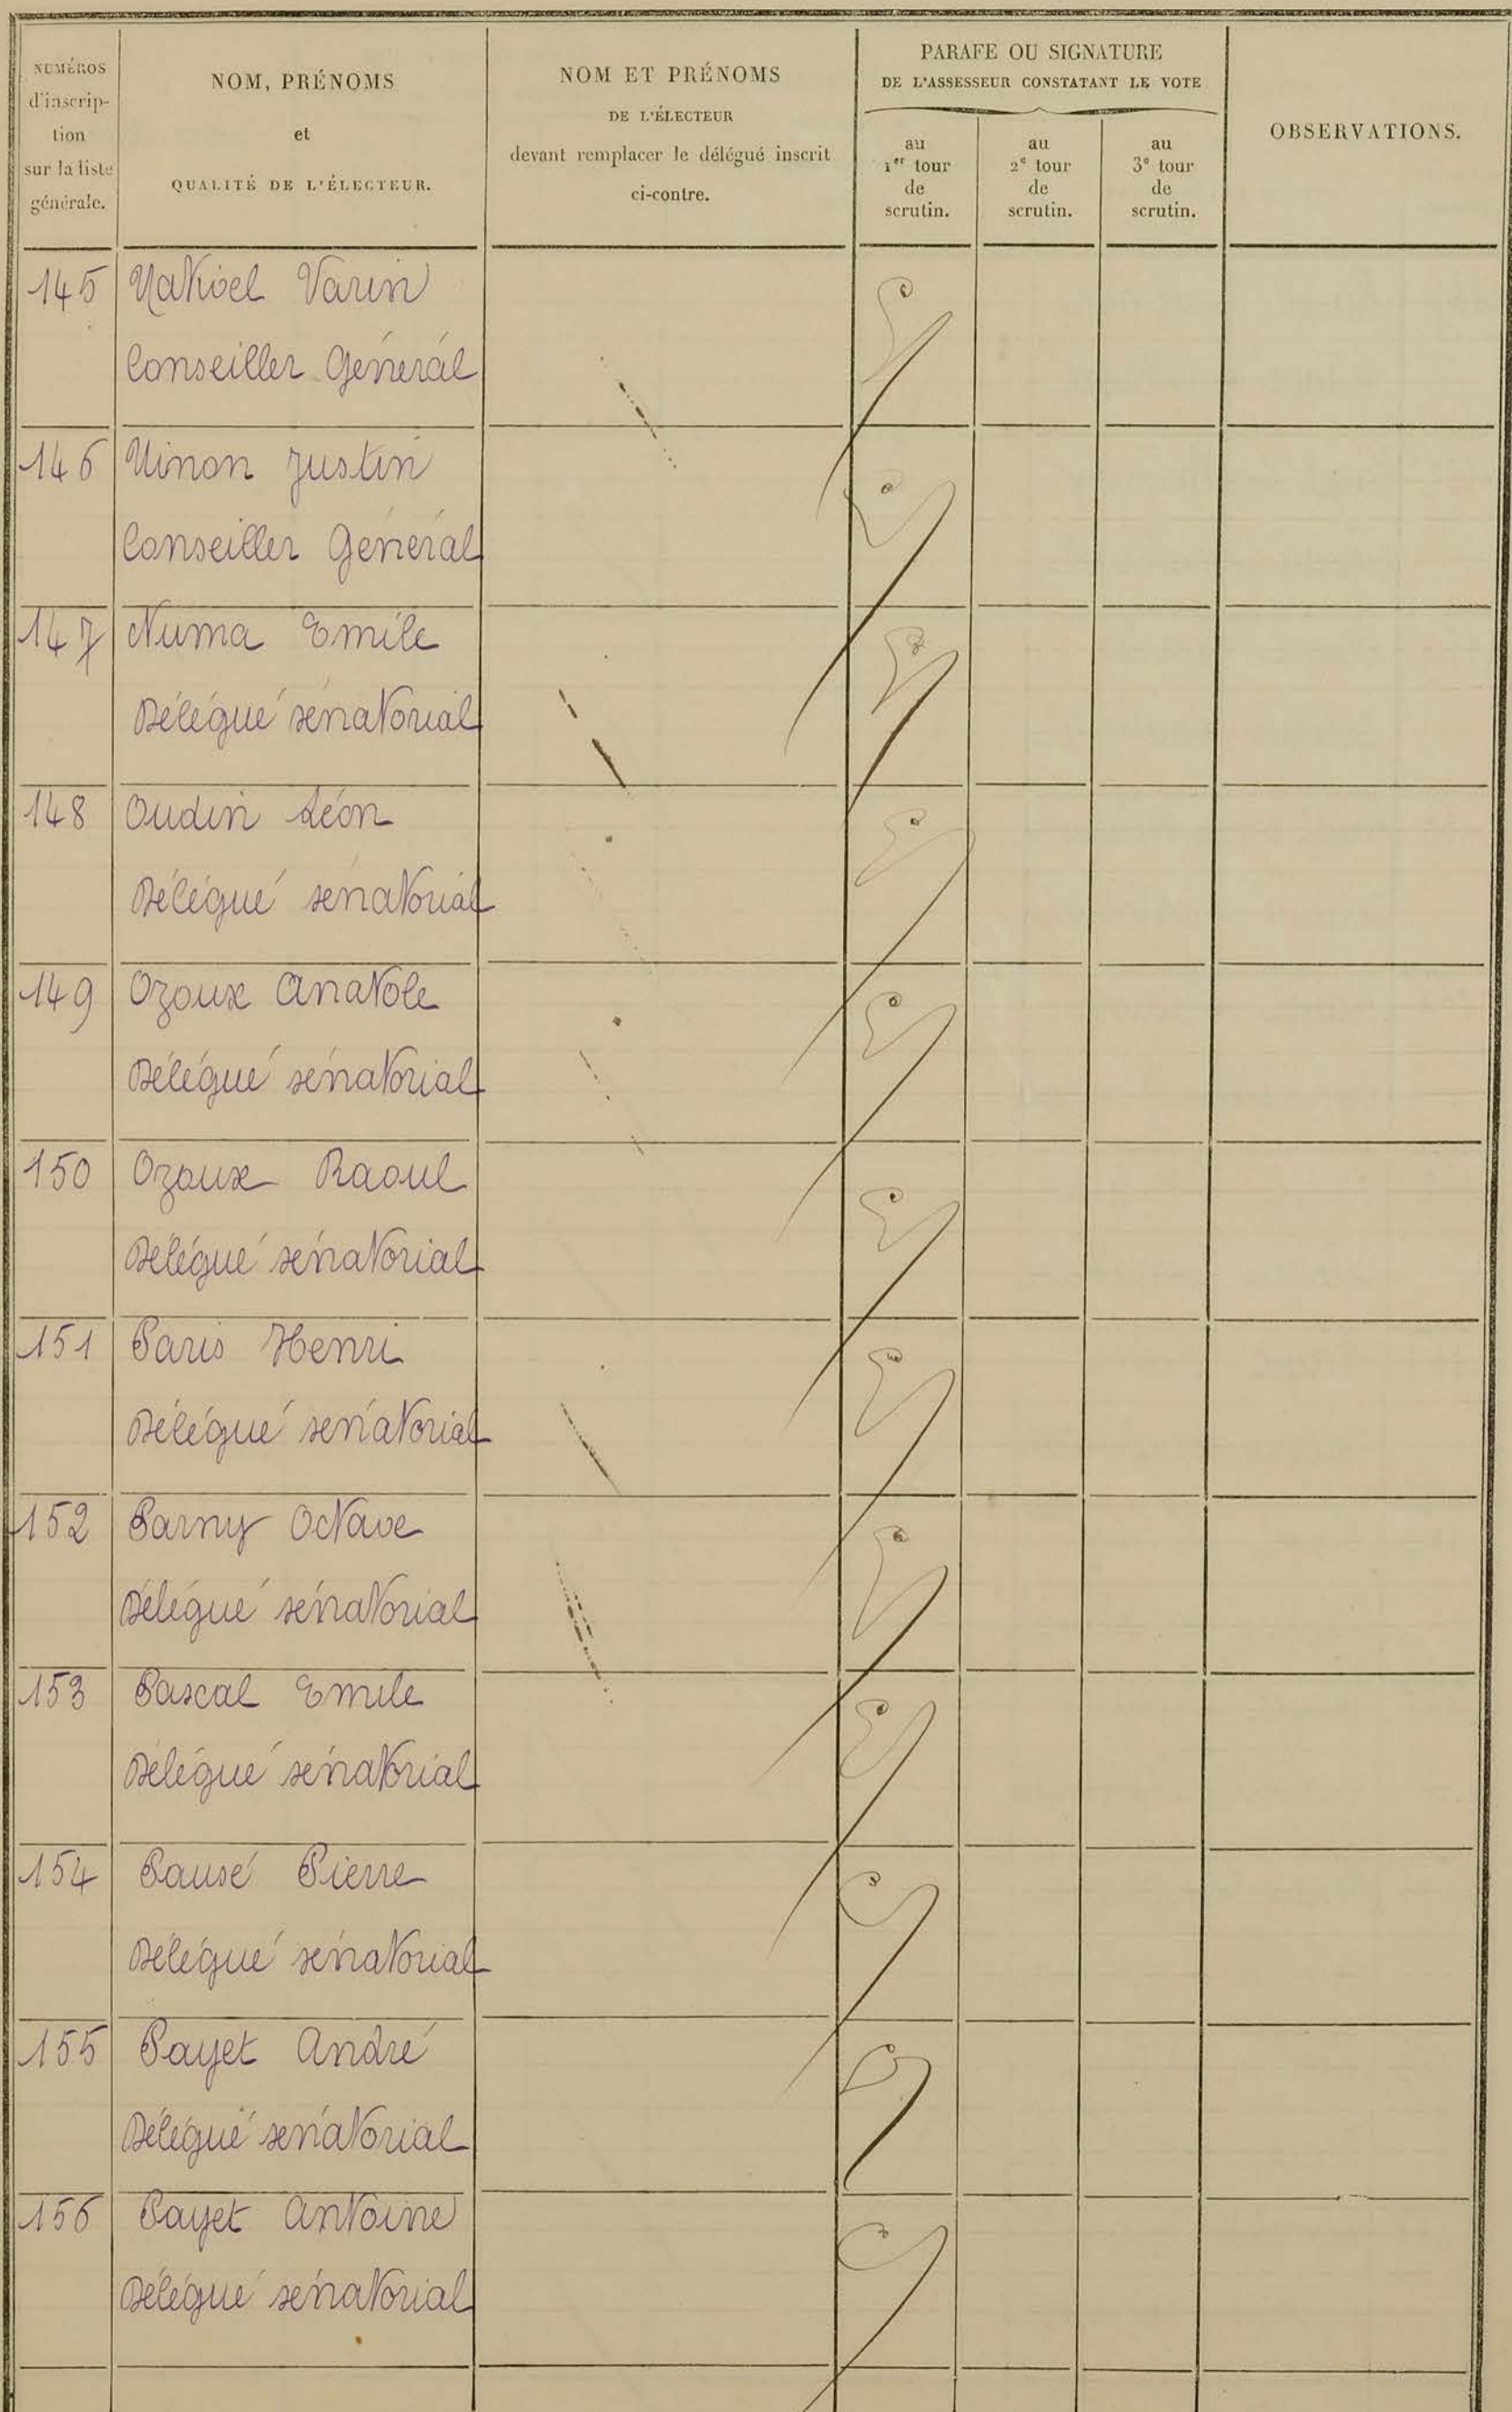 NUMÉROS
d'inscrip-
tion
sur la liste
générale.
NOM, PRÉNOMS
et
QUALITÉ DE L'ÉLECTEUR.
NOM ET PRÉNOMS
DE L'ÉLECTEUR
devant remplacer le délégué inscrit
ci-contre.
PARAFE OU SIGNATURE
DE L'ASSESSEUR CONSTATANT LE VOTE
au
1er tour
de
scrutin.
au
2e tour
de
scrutin.
au
3e tour
de
scrutin.
OBSERVATIONS.
145 Nativel Varin
Conseiller Général
146 Ninon Justin
Conseiller Général
147 Numa Emile
Délégué sénatorial
148 Oudin Léon
Délégué sénatorial
149 Ozoux Anatole
Délégué sénatorial
150 Ozoux Raoul
Délégué sénatorial
151 Paris Henri
Délégué sénatorial
152 Parny Octave
Délégué sénatorial
153 Pascal Emile
Délégué sénatorial
154 Pausé Pierre
Délégué sénatorial
155 Payet André
Délégué sénatorial
156 Payet Antoine
Délégué sénatorial